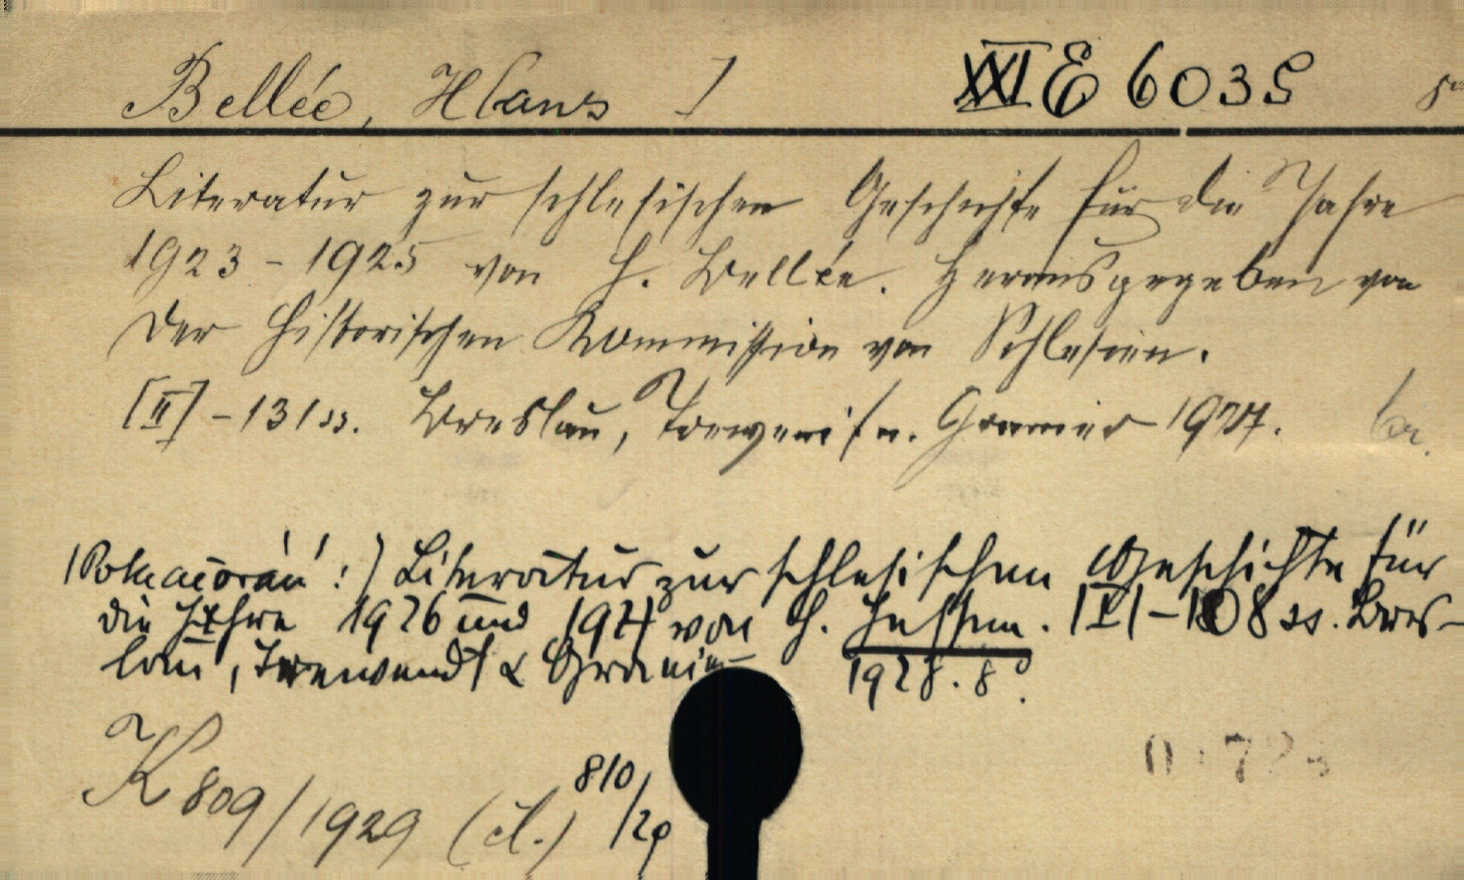 Bellée, Hans ] XXI E 6035 8°
Literatur zur schlesischen Geschichte für die Jahre
1923 - 1925 von H. Bellée. Herausgegeben von
der Historischen Kommission von Schlesien.
[II] - 131 ss. Breslau, Trewendt u. Granier 1927. br.
(Pokračování:) Literatur zur schlesischen Geschichte für
die Jahre 1926 und 1927 von H. Jessen. [II] - 108 ss. Bres-
lau, Trewendt & Granier 1928. 8°.
K 809/1929 (čl.) 810/29